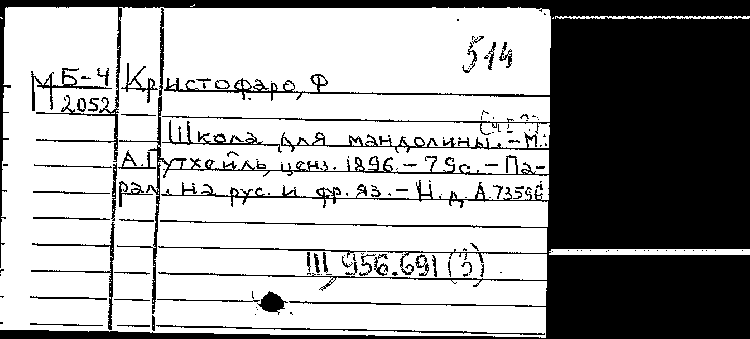 514
М Б-4 Кристофаро, Ф
2052
Школа для мандолины. - М.:
А. Гутхейль, ценз. 1896. - 79с. - Па-
рал. на рус. и фр. яз. - Н. д. А 7359б
III, 956.691 (3)